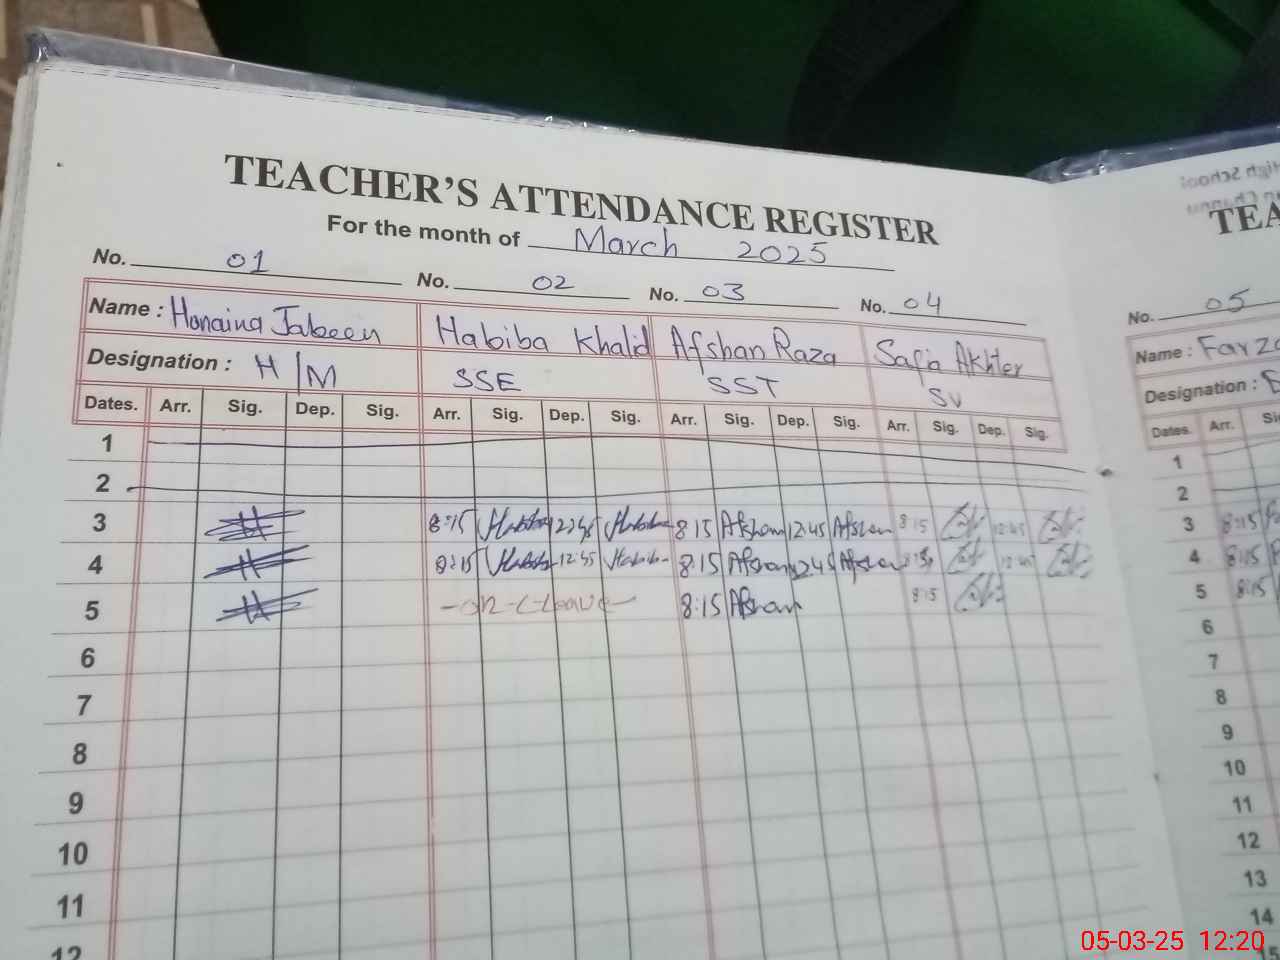 TEACHER'S ATTENDANCE REGISTER
For the month of March 2025
No. 01 No. 02 No. 03 No. 04
Name : Honaina Jabeen Habiba Khalid Afshan Raza Safia Akhter
Designation : H/M SSE SST SV
Dates. Arr. Sig. Dep. Sig. Arr. Sig. Dep. Sig. Arr. Sig. Dep. Sig. Arr. Sig. Dep. Sig.
1
2
3 8:15 Habiba 12:45 Habiba 8:15 Afshan 12:45 Afshan 8:15 12:45
4 8:15 Habiba 12:45 Habiba 8:15 Afshan 12:45 Afshan 8:15 12:45
5 -on-C-Leave- 8:15 Afshan 8:15
6
7
8
9
10
11
12
High School
TEA
No. 05
Name : Farz
Designation :
Dates. Arr. Si
1
2
3 8:15
4 8:15
5 8:15
6
7
8
9
10
11
12
13
14
15
05-03-25 12:20